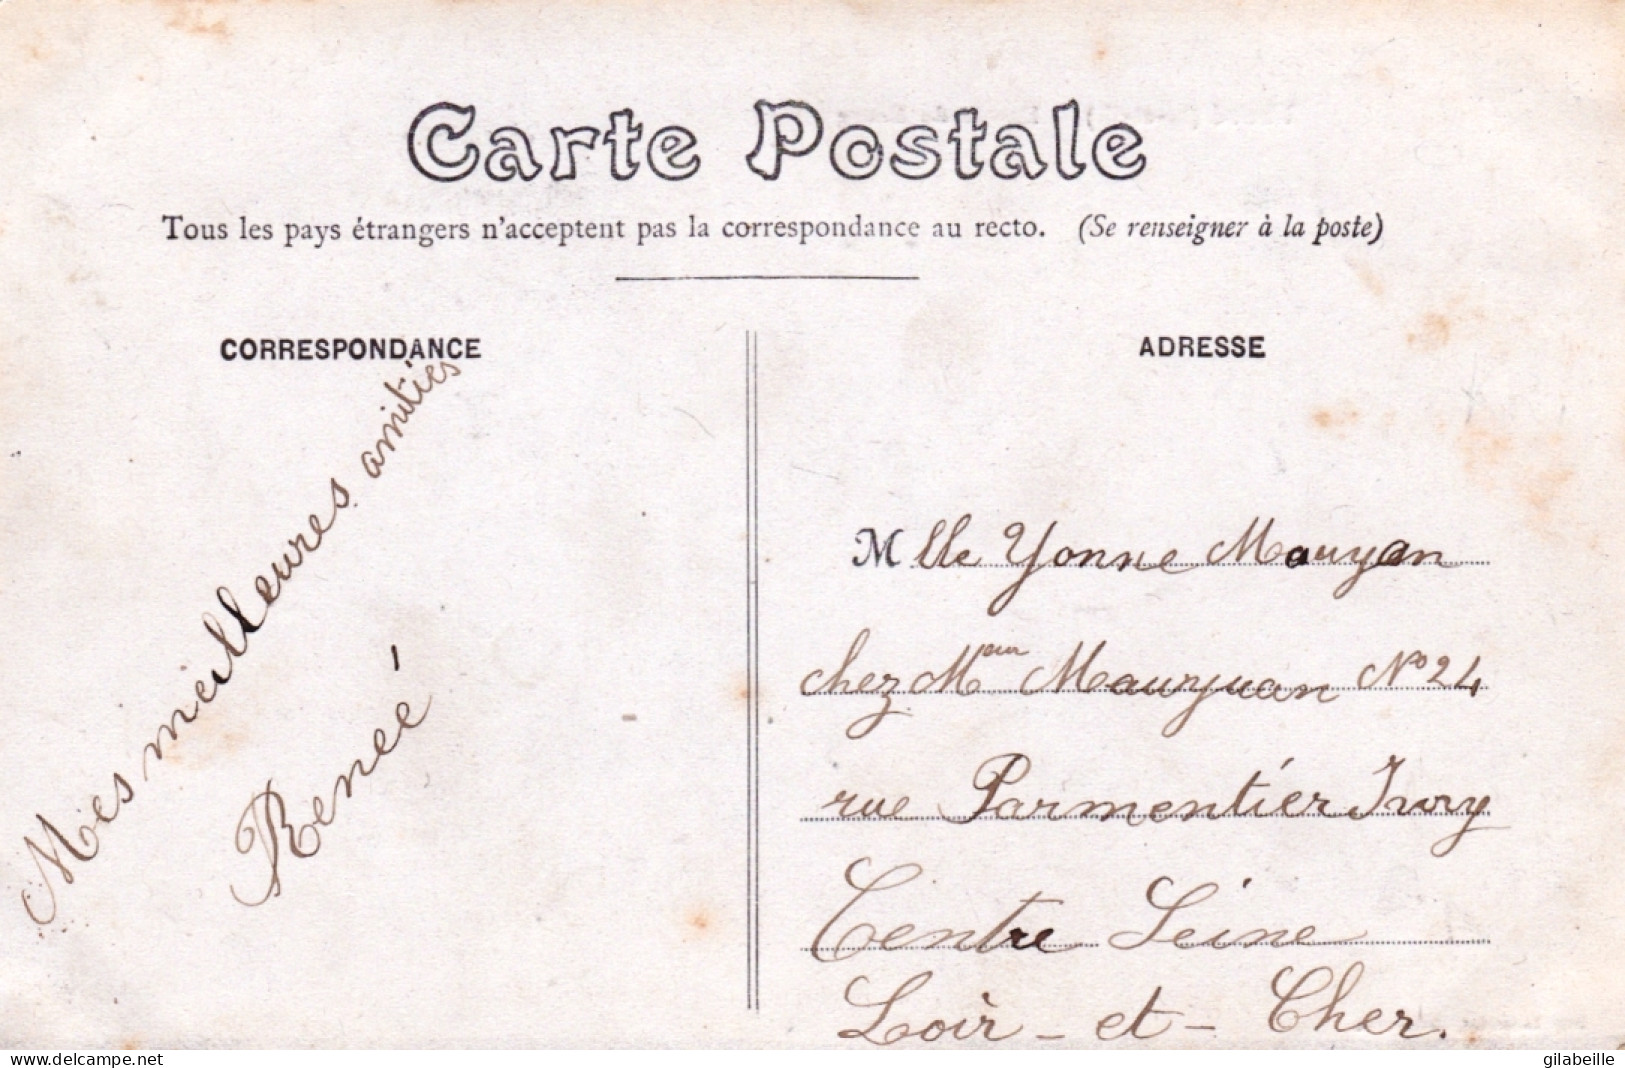 Carte Postale
Tous les pays étrangers n'acceptent pas la correspondance au recto. (Se renseigner à la poste)
CORRESPONDANCE
Mes meilleures amitiés
Reneé
ADRESSE
Mlle Yonne
chez N° 24
rue Parmentier Ivry
Centre Seine
Loir-et-Cher.
delcampe.net
gilabeille